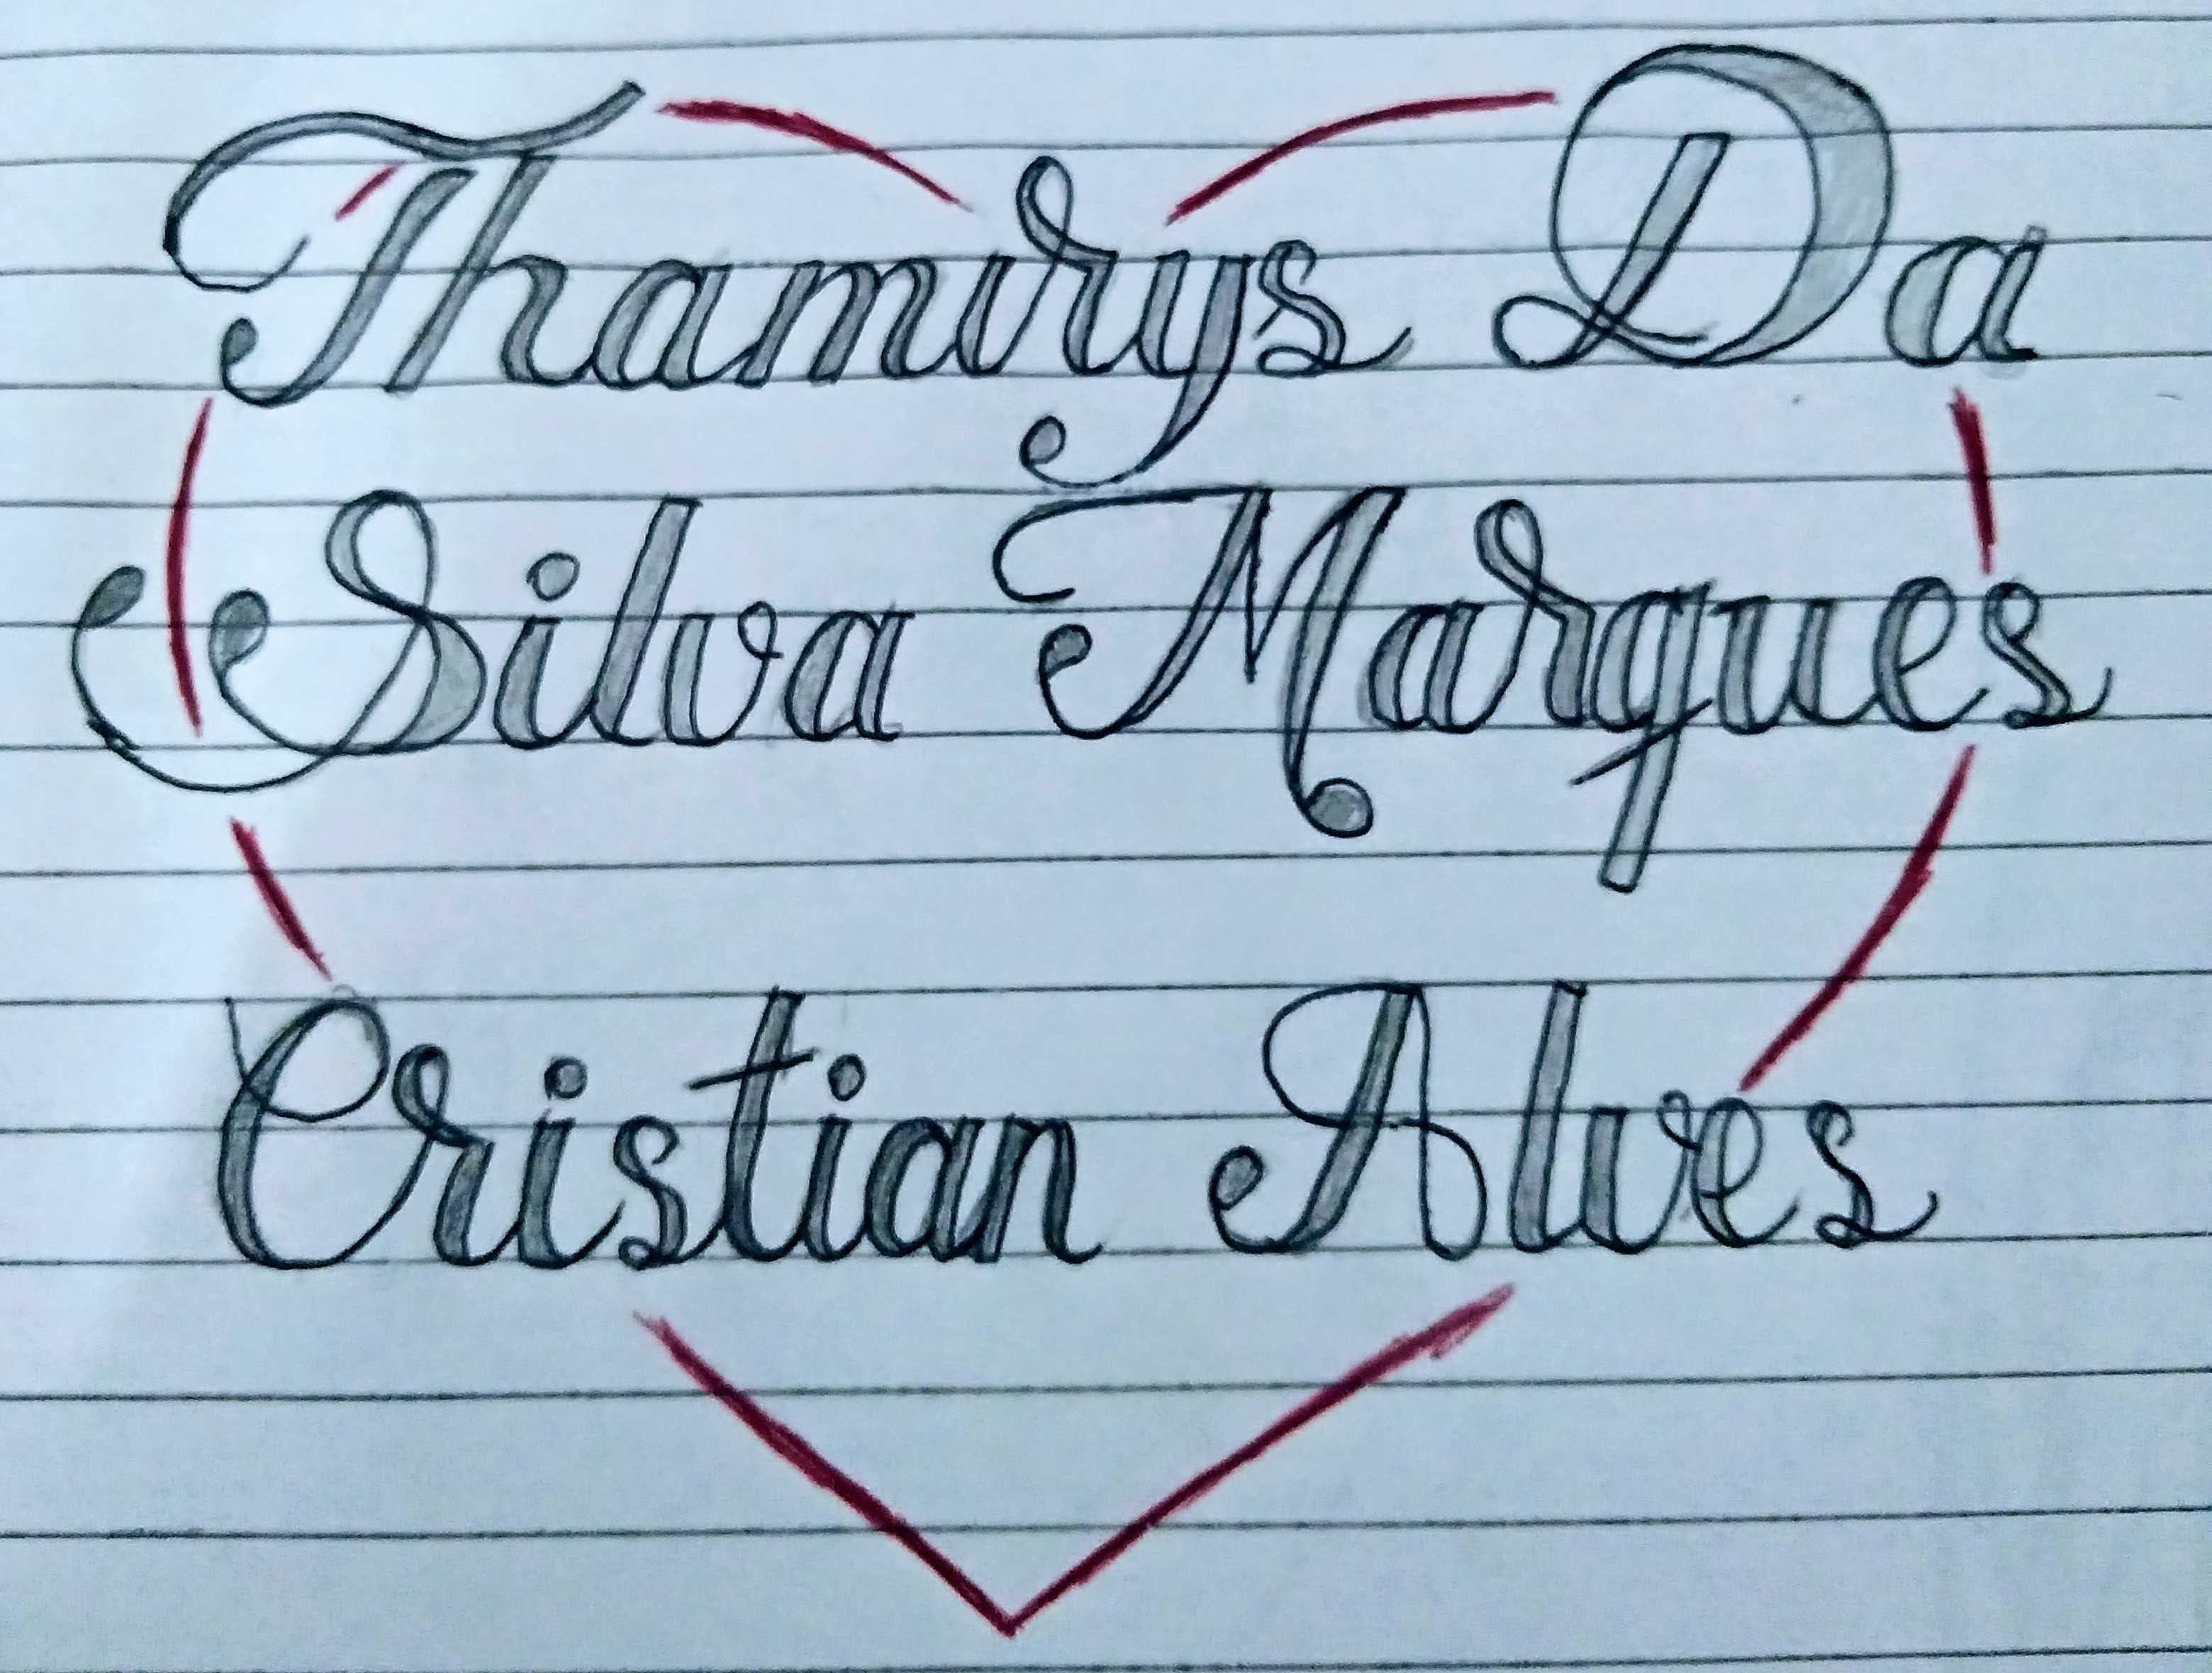 Thamirys Da
Silva Marques
Cristian Alves